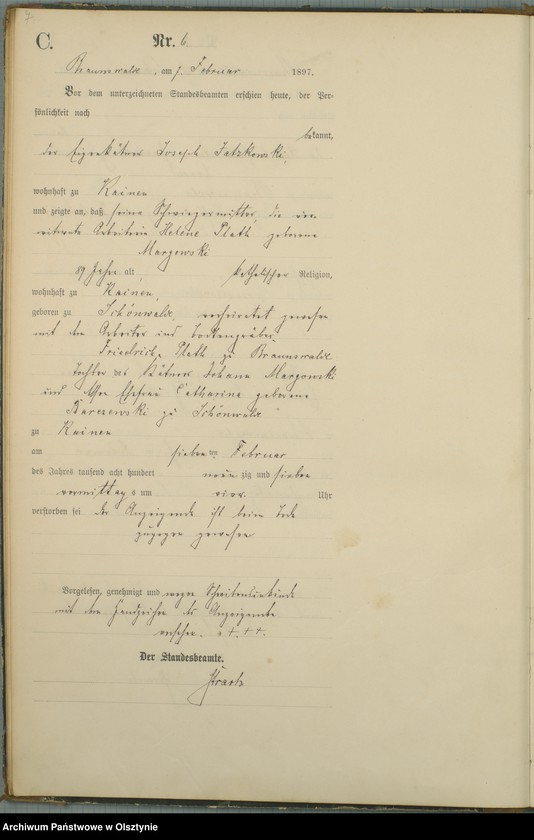 7
C.
Nr. 6
Braunswalde, am 7. Februar 1897.
Vor dem unterzeichneten Standesbeamten erschien heute, der Per-
sönlichkeit nach
bekannt,
der Eigenkäthner Joseph Jatzkowski,
wohnhaft zu Kainen
und zeigte an, daß seine Schwiegermutter, die ver-
wittwete Arbeiterin Helene Plath geborene
Margowski
89 Jahre alt, katholischer Religion,
wohnhaft zu Kainen,
geboren zu Schönwalde, verheiratet gewesen
mit dem Arbeiter und
Friedrich Plath zu Braunswalde
Tochter des Käthners Johann Margowski
und dessen Ehefrau Catharina geborene
Barczewski zu Schönwalde
zu Kainen
am sieben ten Februar
des Jahres tausend acht hundert neun zig und sieben
vormittags um vier Uhr
verstorben sei der Anzeigende ist beim Tode
zugegen gewesen
Vorgelesen, genehmigt und wegen Schreibensunkunde
mit dem Handzeichen des Anzeigenden
versehen. +++.
Der Standesbeamte.
Archiwum Państwowe w Olsztynie